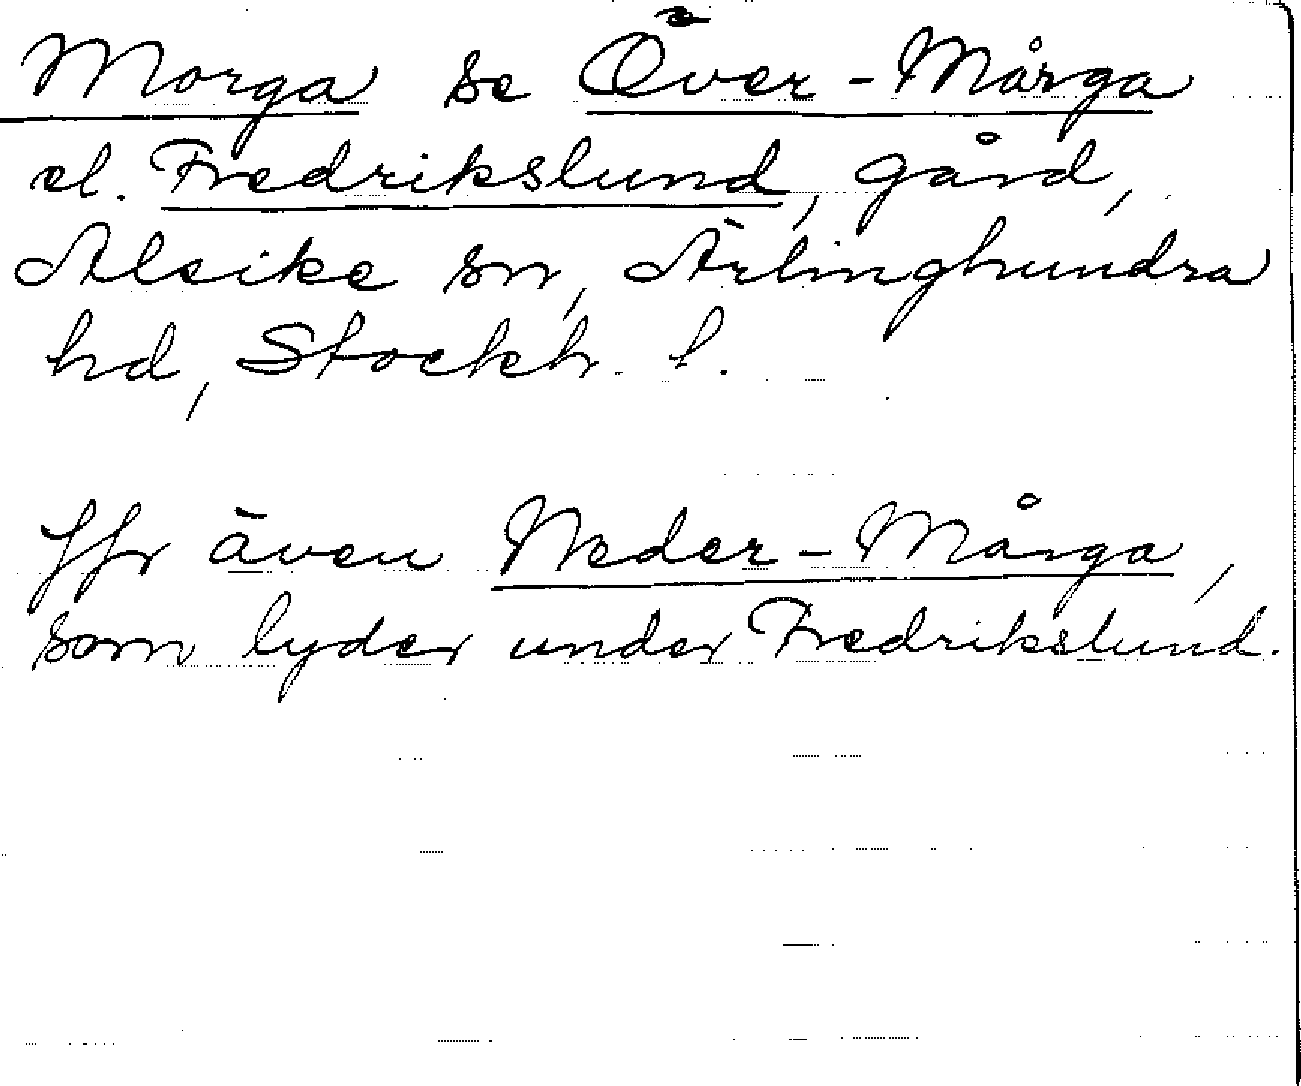 Morga se Över-Mårga
el. Fredrikslund, gård,
Alsike sn, Ärlinghundra
hd, Stockh. l.
Jfr även Neder-Mårga,
som lyder under Fredrikslund.